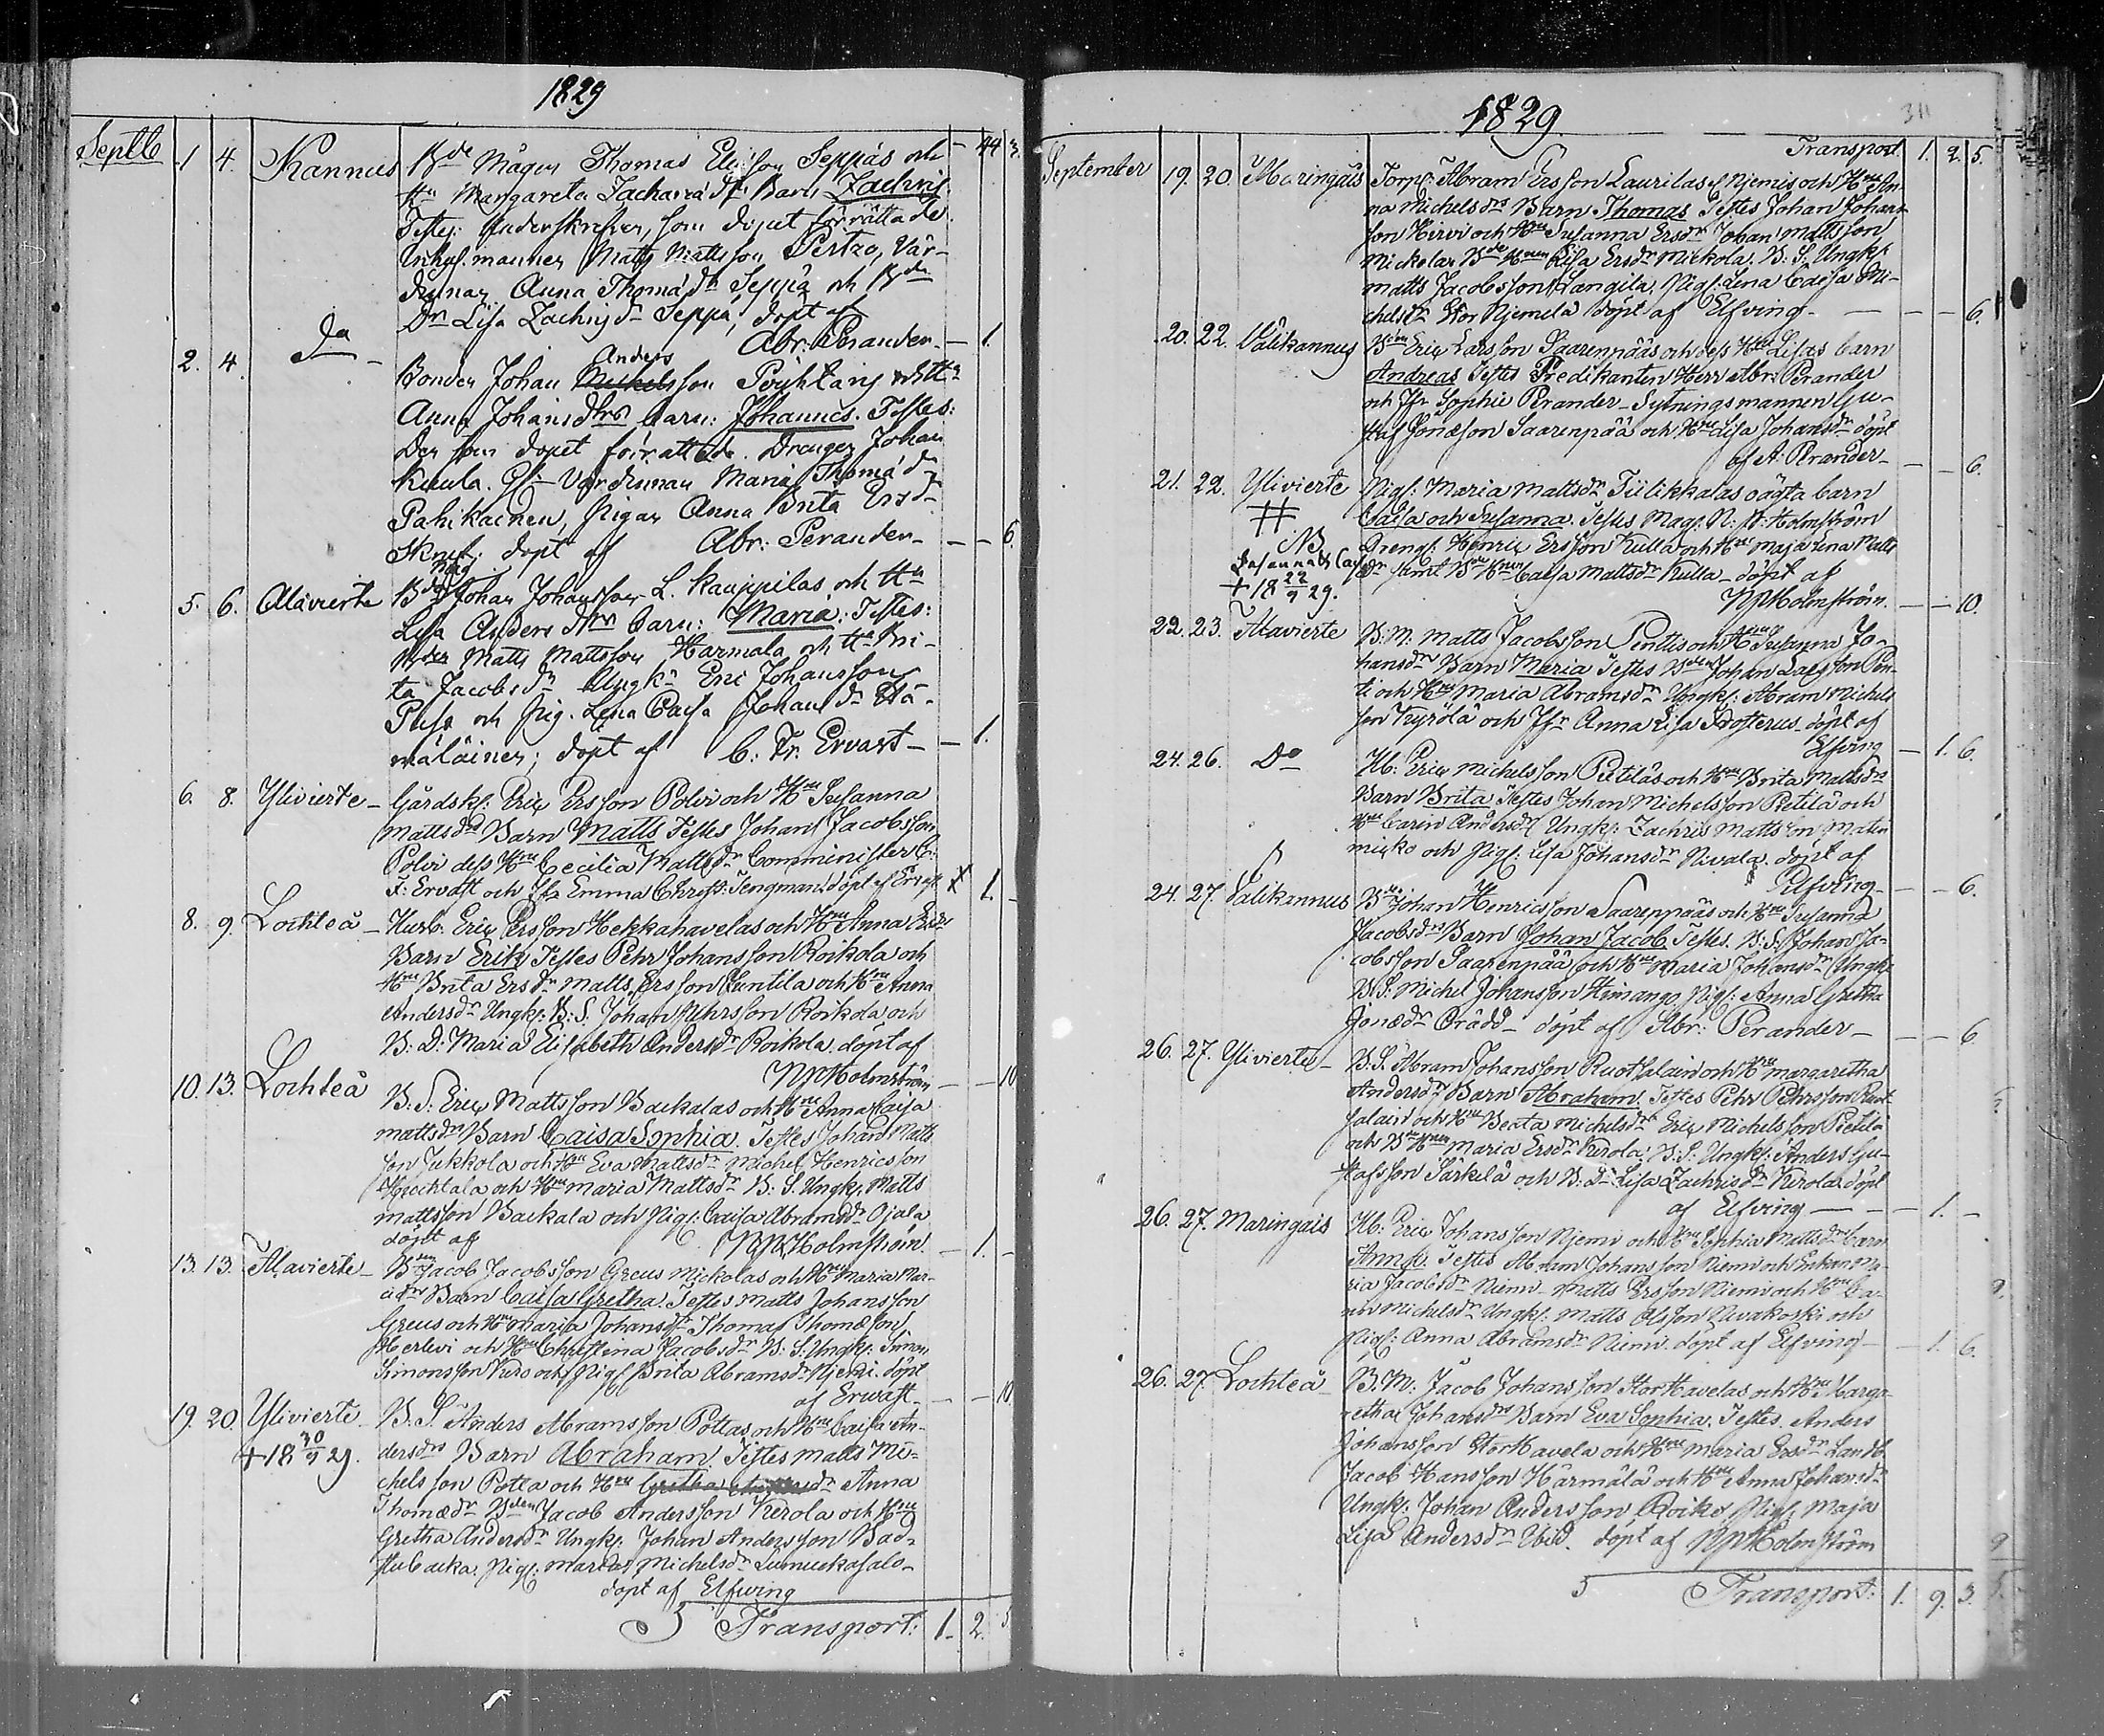 1829
Septb 1 4. Kannus Bde Mågen Thomas Seppäs och - 44 3.
Hu Margareta Zachariædr Barn Zachris
Testes: Underskrefven, som dopet förrättade
Inhys.mannen Matts Mattsson Pertzo, Vär-
dinnan Anna Thomædr Seppä och Bde
Dr Lisa Zachrisdr Seppä, döpt af
Abr. Peranden. - 1.
2. 4. Do - Bonden Johan Anders Michelsson Pöyhtäris och Hu
Anna Johansdrs barn: Johannes. Testes:
Den som dopet förrättade. Drengen Johan
Kuula. Gl- Värdinnan Maria Thomædr
Pahikainen, Pigan Anna Brita Ersdr
döpt af Abr: Perander - - - 6.
5. 6. Alavierte Bd Mag Johan Johansson L. Kauppilas och Hu
Lisa Anders drs barn: Maria: Testes:
Bden Matts Mattsson Harmala och Hu Bri-
ta Jacobsdr Ungkn Eric Johansson
och Pig. Lena Caisa Johansdr Hä-
mäläinen; döpt af C: Fr. Ervast - - 1.
6. 8. Ylivierte - Gårdsk: Eric Ersson Polvi och Hus Susanna
Mattsdrs Barn Matts Testes Johan Jacobsson
Polvi dess Hu Cecilia Mattsdr Comminister C:
F: Ervast och Jfr Emma Christ: Tengman döpt af Ervast. X 1. -
8. 9. Lochteå - Husb: Eric Ersson Hekkahavelas och Hus Anna Ersdrs
Barn Erik Testes Pehr Johansson Roikola och
Hus Brita Ersdr Matts Ersson Luntila och Hus Anna
Andersdr Ungk: B: S. Johan Pehrsson Roikola och
B: D: Maria Elisabeth Andersdr Roikola. döpt af
NPHolmström - - 10
10. 13. Lochteå B: S: Eric Mattsson Backalas och Hus Anna Caisa
Mattsdrs Barn Caisa Sophia. Testes Johan Matts
son Jukkola och Hus Eva Mattsdr Michel Henricsson
och Hus Maria Mattsdr B: S. Ungk. Matts
Mattsson Backala och Pigs: Caisa Abramsdr Ojala
döpt af NPHolmström. - 1. -
13. 13. Alavierte - Bden Jacob Jacobsson Greus Mickolas och Hus Maria Mar-
cidrs Barn Caisa Gretha. Testes Matts Johansson
Greus och Hus Maria Johansdr Thomas Thomæson
Herlevi och Hus Christina Jacobsdr B: S. Ungk: Simon
Simonsson Kuro och Pigs Brita Abramsdr Njemi. döpt
af Erwast - - - 10
19. 20. Ylivierte B. S. Anders Abramsson Pottas och Hus Caisa An-
+ 18 30/9 29. dersdrs Barn Abraham. Testes Matts Mi-
chelsson Potta och Hus Gretha Anna
Thomædr Bden Jacob Andersson Kerola och Hus
Gretha Andersdr Ungk: Johan Andersson Bad-
stubacka. Pigs: Michelsdr
döpt af Elfwing
Transport: 1. 2. 5.
1829. 311
Transport. 1. 2. 5.
September 19. 20. Maringais Torp: Abram Ersson Laurilas af Njemis och Hus An-
na Michelsdrs Barn Thomas Testes Johan Johans
son Hirvi och Hus Susanna Ersdr Johan Mattsson
Mickolas Bde Hun Lisa Ersdr Mickola. B: S. Ungk:
Matts Jacobsson Langila. Pigs: Lena Caisa Mi-
chelsdr Stor Njemelä döpt af Elfving - - - 6.
20. 22. Välikannus Bden Eric Larsson Saarenpääs och dess Hus Lisas barn
Andreas Testes Predikanten Herr Abr: Perander
och Jfr Sophie Perander - Sytningsmannen Gu-
staf Jonæson Saarenpää och Hus Lisa Johansdr döpt
af A: Perander - - - 6.
21. 22. Ylivierte Pigs: Maria Mattsdr Tiilikkalas oägta barn
# Caisa och Susanna. Testes Mag: N: P: Holmström
NB Drengs: Henric Ersson Kulla och Hus Maja Lena Matts
Susanna & Cais dr samt Bde Hun Caisa Mattsdr Kulla - döpt af
+ 18 22/9 29. NPHolmström. - - 10.
22. 23. Alavierte B. M: Matts Jacobsson Penttis och Hus Susanna Jo-
hansdrs Barn Maria Testes Bden Johan Larsson Pen-
ti och Hus Maria Abramsdr Ungk: Abram Michels
son Kyrölä och Jfr Anna Lisa Frosterus. döpt af
Elfving - 1. 6.
24. 26. Do Hb: Eric Michelsson Pietiläs och Hus Brita Mattsdrs
Barn Brita Testes Johan Michelsson Pietilä och
Hus Carin Andersdr Ungk: Zachris Mattsson Matin
mikko och Pigs: Lisa Johansdr Nivala. döpt af
Elfving - - - 6.
24. 27. Välikannus Bde Johan Henricsson Saarenpääs och Hus Susanna
Jacobsdrs Barn Johan Jacob Testes. B: S. Johan Ja-
cobsson Saarenpää och Hus Maria Johansdr Ungk:
B: S: Michel Johansson Himango. Pigs: Anna Gretha
Jonædr Brådd - döpt af Abr: Perander - - - 6
26. 27. Ylivierte - B. S. Abram Johansson Ruotsalain och Hus Margaretha
Andersdrs Barn Abraham. Testes Pehr Pehrsson Ruot
salain och Hus Beata Michelsdr Eric Michelsson Pietilä
och Bde Hun Maria Ersdr Kerola: B: S: Ungk: Anders Gu-
stafsson Särkelä och B. D: Lisa Zachrisdr Kerola. döpt
af Elfving - - 1. -
26. 27. Maringais Hb: Eric Johansson Njemi och Hus Sophia Mattsdrs barn
Anna. Testes Abram Johansson Niemi och Enkan Ma-
ria Jacobsdr Niemi - Matts Ersson Niemi och Hus Ca-
rin Michelsdr Ungk: Matts Olsson Nivakoski och
Pigs: Anna Abramsdr Niemi. döpt af Elfving - - 1. 6.
26. 27. Lochteå B. M: Jacob Johansson Stor Havelas och Hus Marga-
retha Johansdrs Barn Eva Sophia. Testes. Anders
Johansson Stor Havela och Hus Maria Ersdr
Jacob Hansson Härmälä och Hus Anna Johansdr
Ungk: Johan Andersson Roiko Pigs: Maja
Lisa Andersdr Ibid. döpt af NPHolmström
Transport: 1. 9. 3.